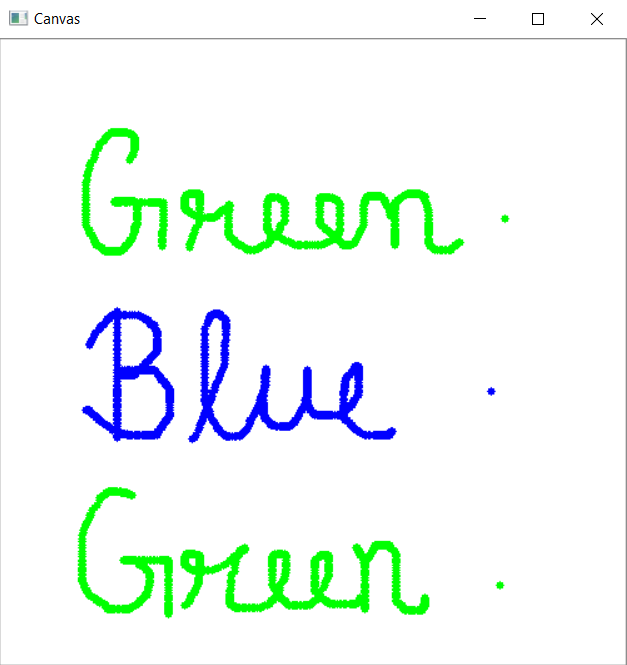 Canvas
Green .
Blue .
Green .